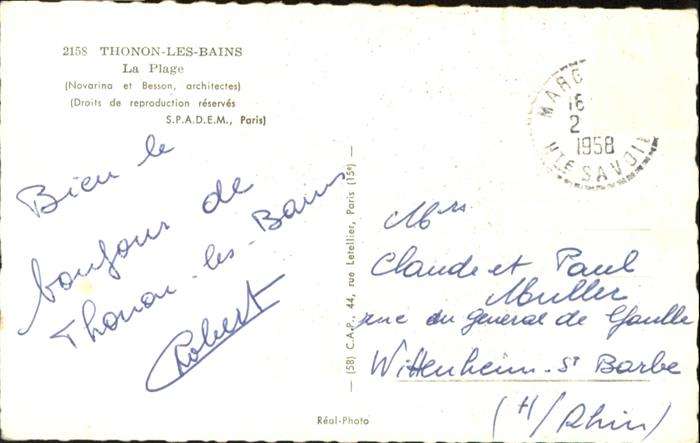 2158 THONON-LES-BAINS
La Plage
(Novarina et Besson, architectes)
(Droits de reproduction réservés
S.P.A.D.E.M., Paris)
Bien le
bonjour de
Thonon-les-Bains
Robert
— (58) C.A.P., 44, rue Letellier, Paris (15e) —
Réal-Photo
MARG
16
2
1958
HTE SAVOIE
Mrs
Claude et Paul
Muller
rue du général de Gaulle
Wittenheim-St Barbe
(H/Rhin)